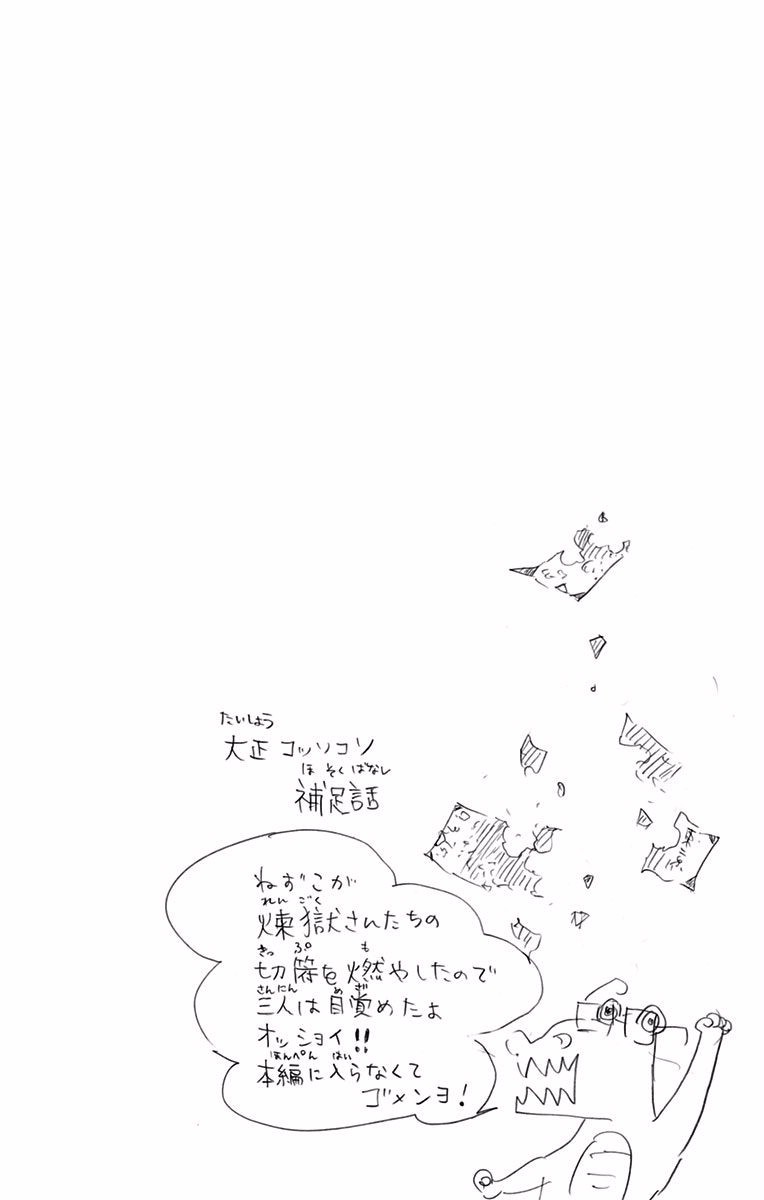 たいしょう
大正コッソコソ
ほそくばなし
補足話
ねずこが
れんごく
煉獄さんたちの
きっぷも
切符を燃やしたので
さんにんめざ
三人は目覚めたよ
オッショイ!!
ほんぺんはい
本編に入らなくて
ゴメンヨ!